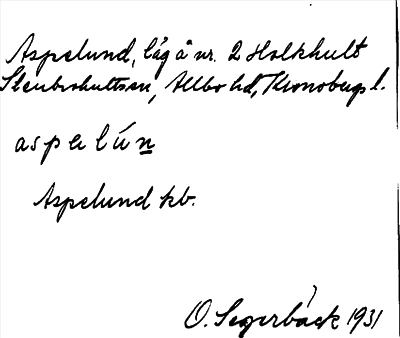 Aspelund, låg å nr. 2 Holkhult
Stenbrohults sn, Allbo hd, Kronobergs l.
aspelún
Aspelund kb.
O. Segerbäck 1931